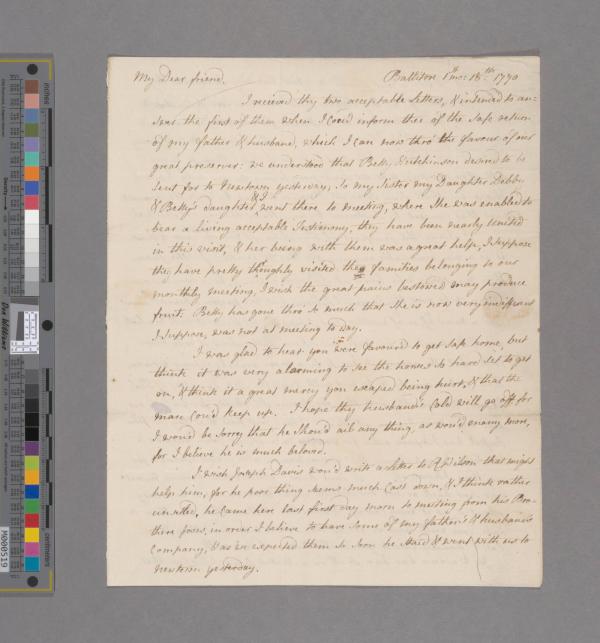 My Dear friend. Ballitore 1st mo: 18th 1770
I received thy two acceptable Letters, & intended to an=
swer the first of them when I coud inform thee of the safe return
of my father & husband, which I can now thro' the favour of our
great preserver: we understood that Betty Hutchinson desired to be
sent for to Newtown yesterday, so my Sister my Daughter Debby
& Betty's daughter & I went there to meeting, where She was enabled to
bear a living acceptable Testimony, they have been nearly united
in this visit, & her being with them was a great help, I suppose
they have pretty thoughly visited the families belonging to our
monthly meeting, I wish the great pains bestowed may produce
fruit. Betty has gone thro' so much that She is now very indifferent
I suppose, was not at meeting to day.
I was glad to hear you were favoured to get safe home, but
think it was very alarming to see the horses so hard set to get
on, & think it a great mercy you escaped being hurt, & that the
mare coud keep up. I hope thy husband's Cold will go off for
I woud be Sorry that he Should ail any thing, as woud many more,
for I believe he is much beloved.
I wish Joseph Davis woud write a letter to R. Wilson that might
help him, for he poor thing Seems much Cast down, & I think rather
unsettled, he came here last first day morn to meeting from his Bro=
there in order I believe to have Some of my father's & husband's
Company, & as we expected them so soon he Staid & went with us to
Newtown yesterday.
inches
centimetres
M000519